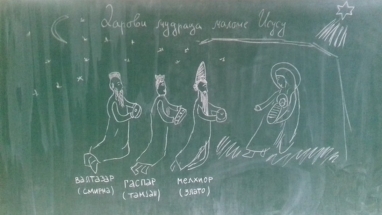 Дарови мудраца малом Исусу
ВАЛТАЗАР ГАСПАР МЕЛХИОР
(СМИРНА) (ТАМЈАН) (ЗЛАТО)